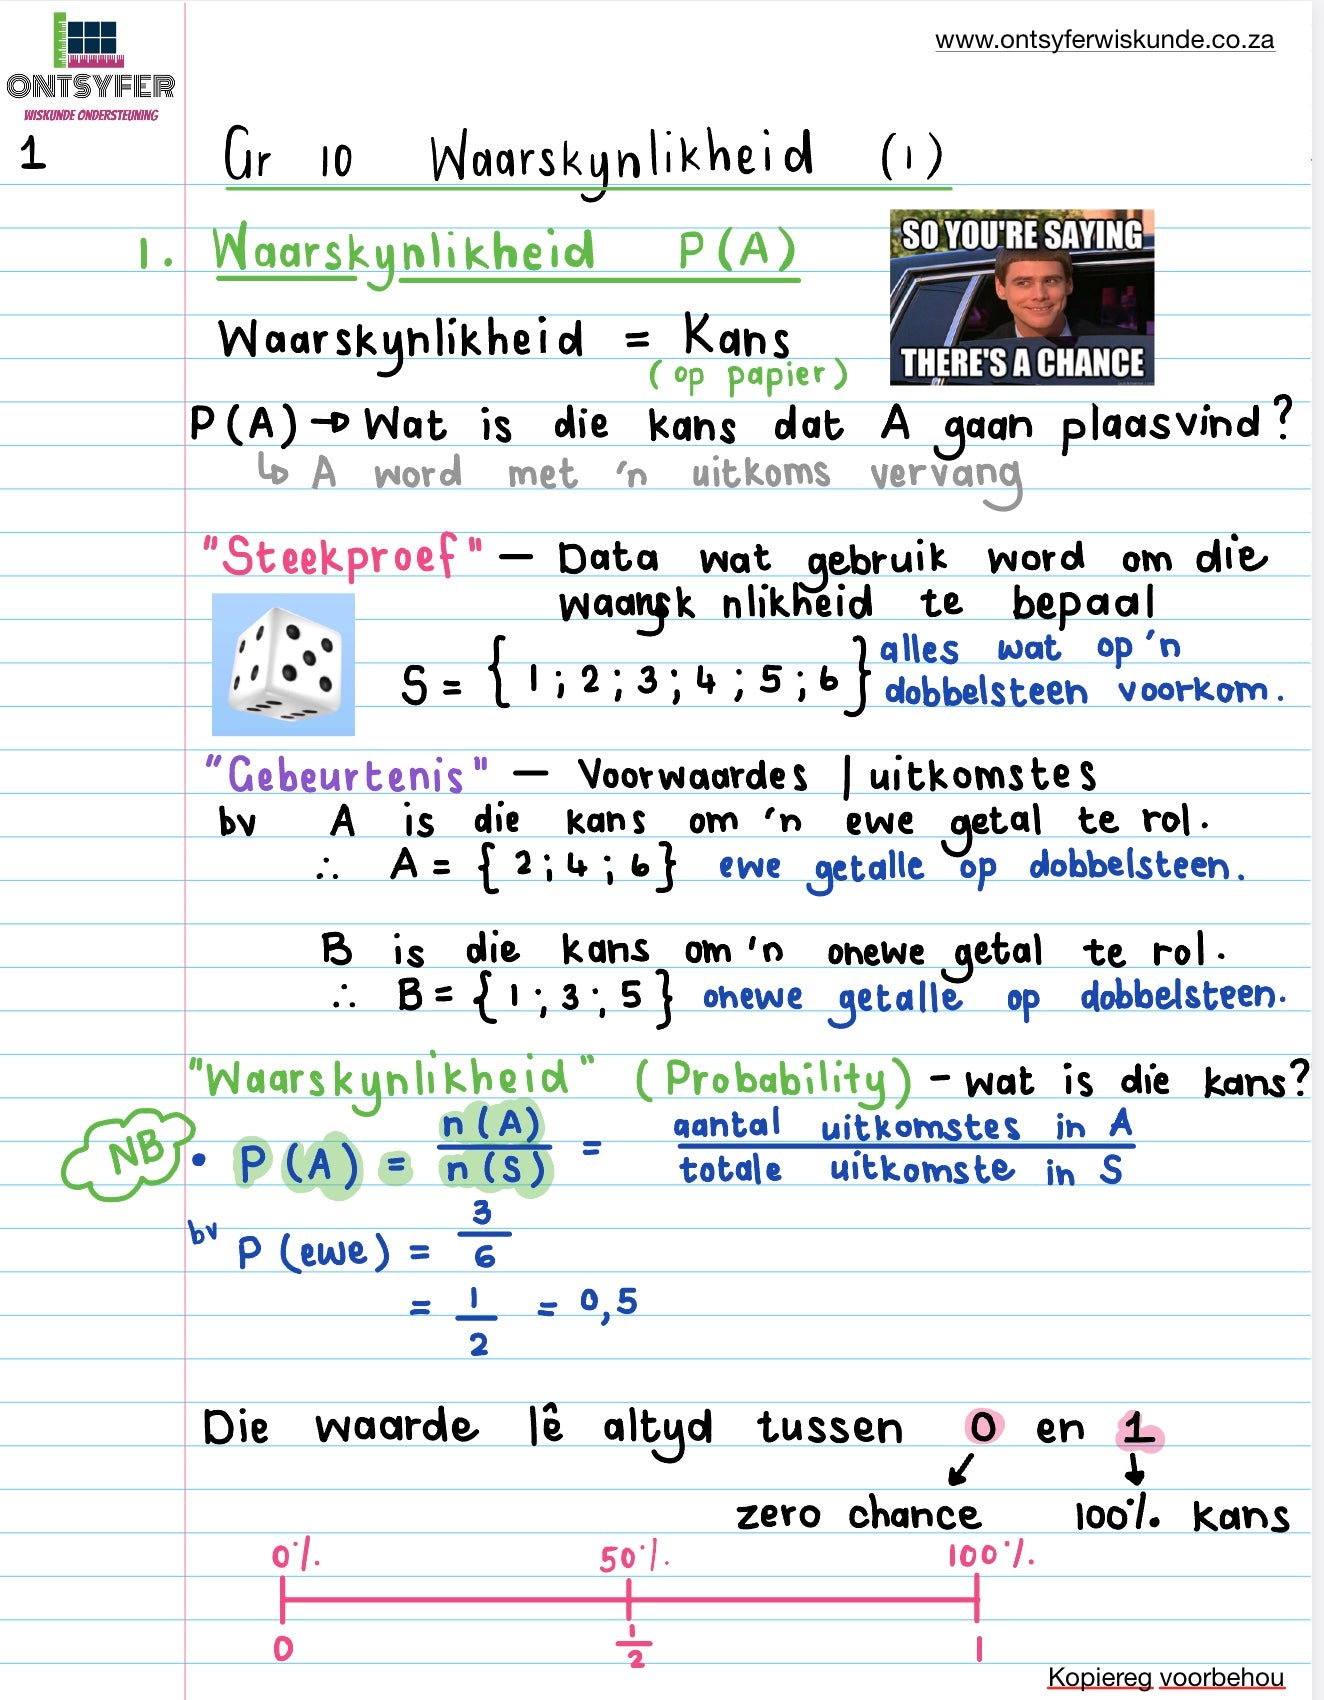 www.ontsyferwiskunde.co.za
ONTSYFER
WISKUNDE ONDERSTEUNING
1
Gr 10 Waarskynlikheid (1)
1. Waarskynlikheid P(A)
SO YOU'RE SAYING
THERE'S A CHANCE
Waarskynlikheid = Kans
(op papier)
P(A) → Wat is die kans dat A gaan plaasvind?
↳ A word met 'n uitkoms vervang
"Steekproef" — Data wat gebruik word om die
nlikheid te bepaal
S = { 1 ; 2 ; 3 ; 4 ; 5 ; 6 } alles wat op 'n
dobbelsteen voorkom.
"Gebeurtenis" — Voorwaardes | uitkomstes
bv A is die kans om 'n ewe getal te rol.
∴ A = { 2 ; 4 ; 6 } ewe getalle op dobbelsteen.
B is die kans om 'n onewe getal te rol.
∴ B = { 1 ; 3 ; 5 } onewe getalle op dobbelsteen.
"Waarskynlikheid" (Probability) - wat is die kans?
NB • P(A) = n(A)/n(S) = aantal uitkomstes in A / totale uitkomste in S
bv P(ewe) = 3/6
= 1/2 = 0,5
Die waarde lê altyd tussen 0 en 1
zero chance 100% kans
0% 50% 100%
0 1/2 1
Kopiereg voorbehou